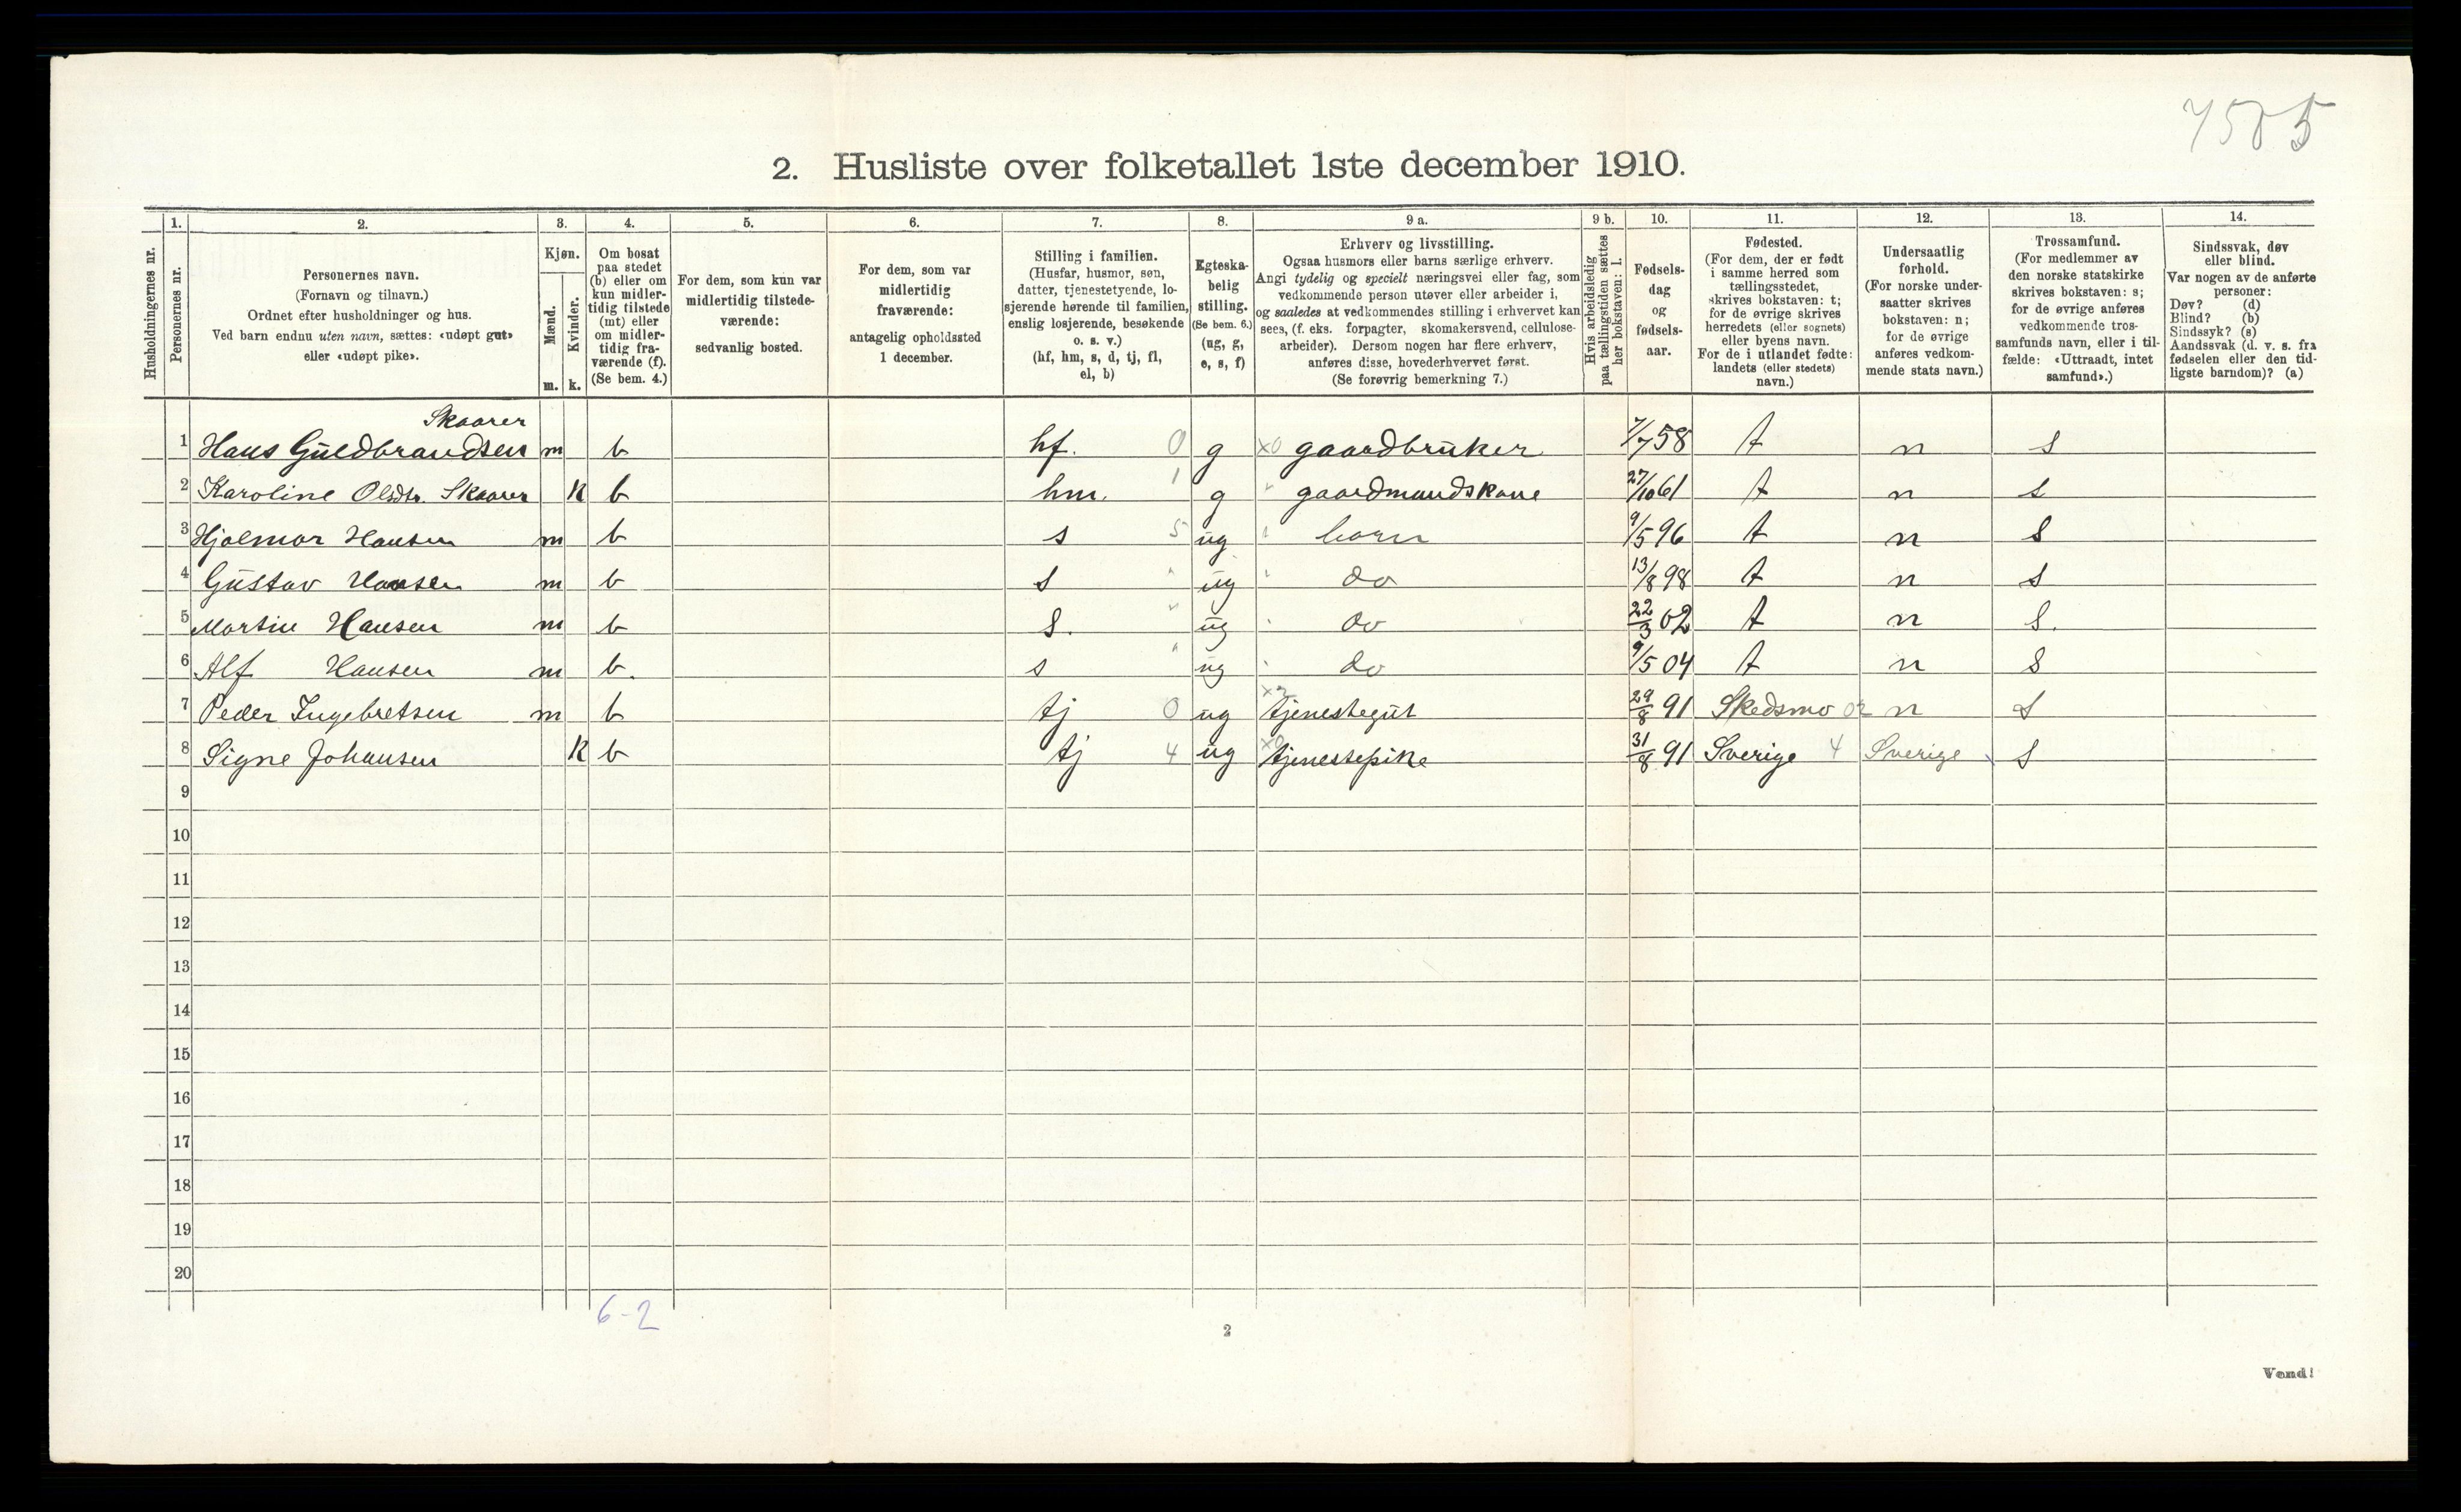 7585
2. Husliste over folketallet 1ste december 1910.
Husholdningernes nr.
1.
Personernes nr.
2.
Personernes navn.
(Fornavn og tilnavn.)
Ordnet efter husholdninger og hus.
Ved barn endnu uten navn, sættes: «udøpt gut»
eller «udøpt pike».
3.
Kjøn.
Mænd.
Kvinder.
m. k.
4.
Om bosat
paa stedet
(b) eller om
kun midler-
tidig tilstede
(mt) eller
om midler-
tidig fra-
værende (f).
(Se bem. 4.)
5.
For dem, som kun var
midlertidig tilstede-
værende:
sedvanlig bosted.
6.
For dem, som var
midlertidig
fraværende:
antagelig opholdssted
1 december.
7.
Stilling i familien.
(Husfar, husmor, søn,
datter, tjenestetyende, lo-
sjerende hørende til familien,
enslig losjerende, besøkende
o. s. v.)
(hf, hm, s, d, tj, fl,
el, b)
8.
Egteska-
belig
stilling.
(Se bem. 6.)
(ug, g,
e, s, f)
9 a.
Erhverv og livsstilling.
Ogsaa husmors eller barns særlige erhverv.
Angi tydelig og specielt næringsvei eller fag, som
vedkommende person utøver eller arbeider i,
og saaledes at vedkommendes stilling i erhvervet kan
sees, (f. eks. forpagter, skomakersvend, cellulose-
arbeider). Dersom nogen har flere erhverv,
anføres disse, hovederhvervet først.
(Se forøvrig bemerkning 7.)
9 b.
Hvis arbeidsledig
paa tællingstiden sættes
her bokstaven: l.
10.
Fødsels-
dag
og
fødsels-
aar.
11.
Fødested.
(For dem, der er født
i samme herred som
tællingsstedet,
skrives bokstaven: t;
for de øvrige skrives
herredets (eller sognets)
eller byens navn.
For de i utlandet fødte:
landets (eller stedets)
navn.)
12.
Undersaatlig
forhold.
(For norske under-
saatter skrives
bokstaven: n;
for de øvrige
anføres vedkom-
mende stats navn.)
13.
Trossamfund.
(For medlemmer av
den norske statskirke
skrives bokstaven: s;
for de øvrige anføres
vedkommende tros-
samfunds navn, eller i til-
fælde: «Uttraadt, intet
samfund».)
14.
Sindssvak, døv
eller blind.
Var nogen av de anførte
personer:
Døv? (d)
Blind? (b)
Sindssyk? (s)
Aandssvak (d. v. s. fra
fødselen eller den tid-
ligste barndom)? (a)
Skaarer
1 Hans Guldbrandsen m b hf. 0 g x0 gaardbruker 7/7 58 t n s
2 Karoline Olsdtr. Skaarer k b hm. 1 g " gaardmandskone 27/10 61 t n s
3 Hjalmar Hansen m b s 5 ug " barn 9/5 96 t n s
4 Gustav Hansen m b s " ug " do 13/8 98 t n s
5 Martin Hansen m b s. " ug " do 22/3 02 t n s.
6 Alf Hansen m b. s " ug " do 9/5 04 t n s
7 Peder Ingebretsen m b tj 0 ug x2 tjenestegut 29/8 91 Skedsmo 02 n s
8 Signe Johansen k b tj 4 ug x0 tjenestepike 31/8 91 Sverige 4 Sverige s
9
10
11
12
13
14
15
16
17
18
19
20
6-2
2
Vend!